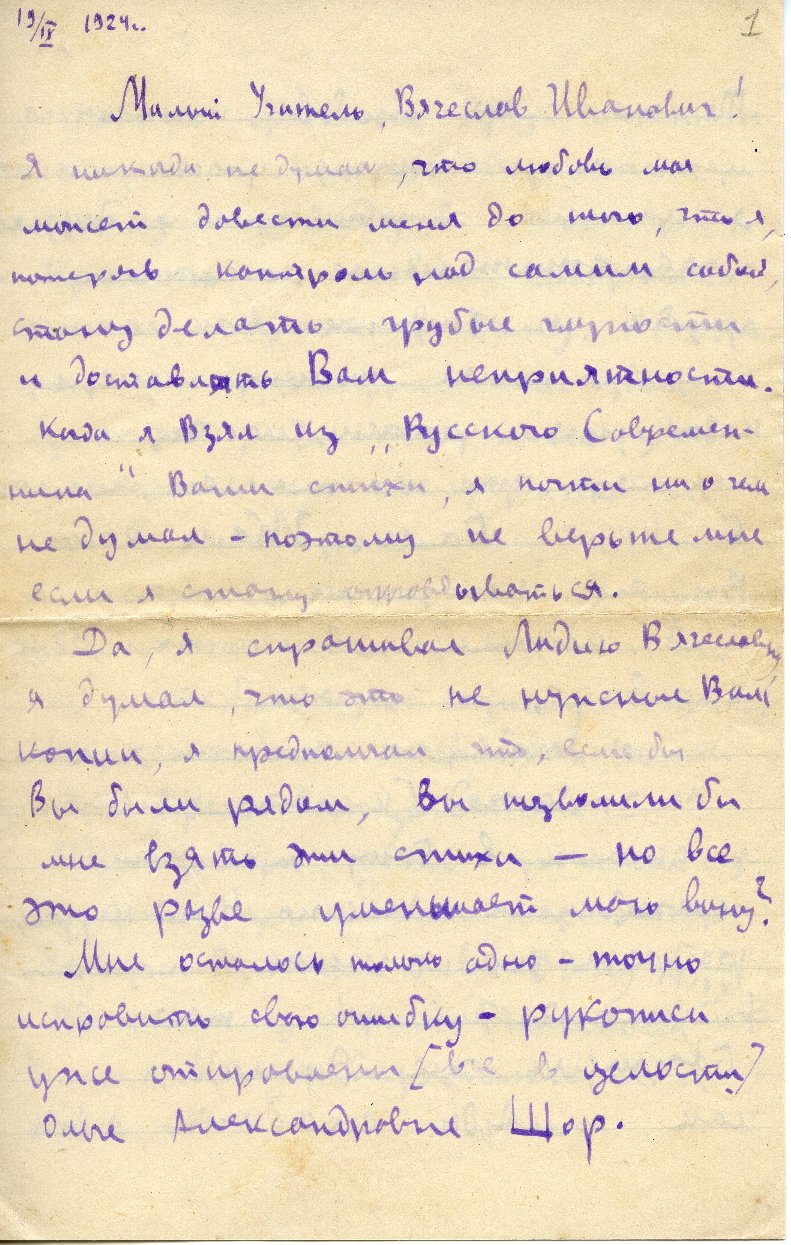 19/IX 1924 г.
1
Милый Учитель, Вячеслав Иванович!
Я никогда не думал, что любовь моя
может довести меня до того, что я,
потеряв контроль над самим собой,
стану делать грубые глупости
и доставлять Вам неприятности.
Когда я взял из „Русского Современ-
ника" Ваши стихи, я почти ни о чем
не думал – поэтому не верьте мне
если я стану оправдываться.
Да, я спрашивал Лидию Вячеславовну
я думал, что это не нужные Вам
копии, я предполагал что, если бы
Вы были рядом, Вы позволили бы
мне взять эти стихи – но все
это разве уменьшает мою вину?
Мне осталось только одно – точно
исправить свою ошибку – рукописи
уже отправлены (все в целости)
Ольге Александровне Шор.